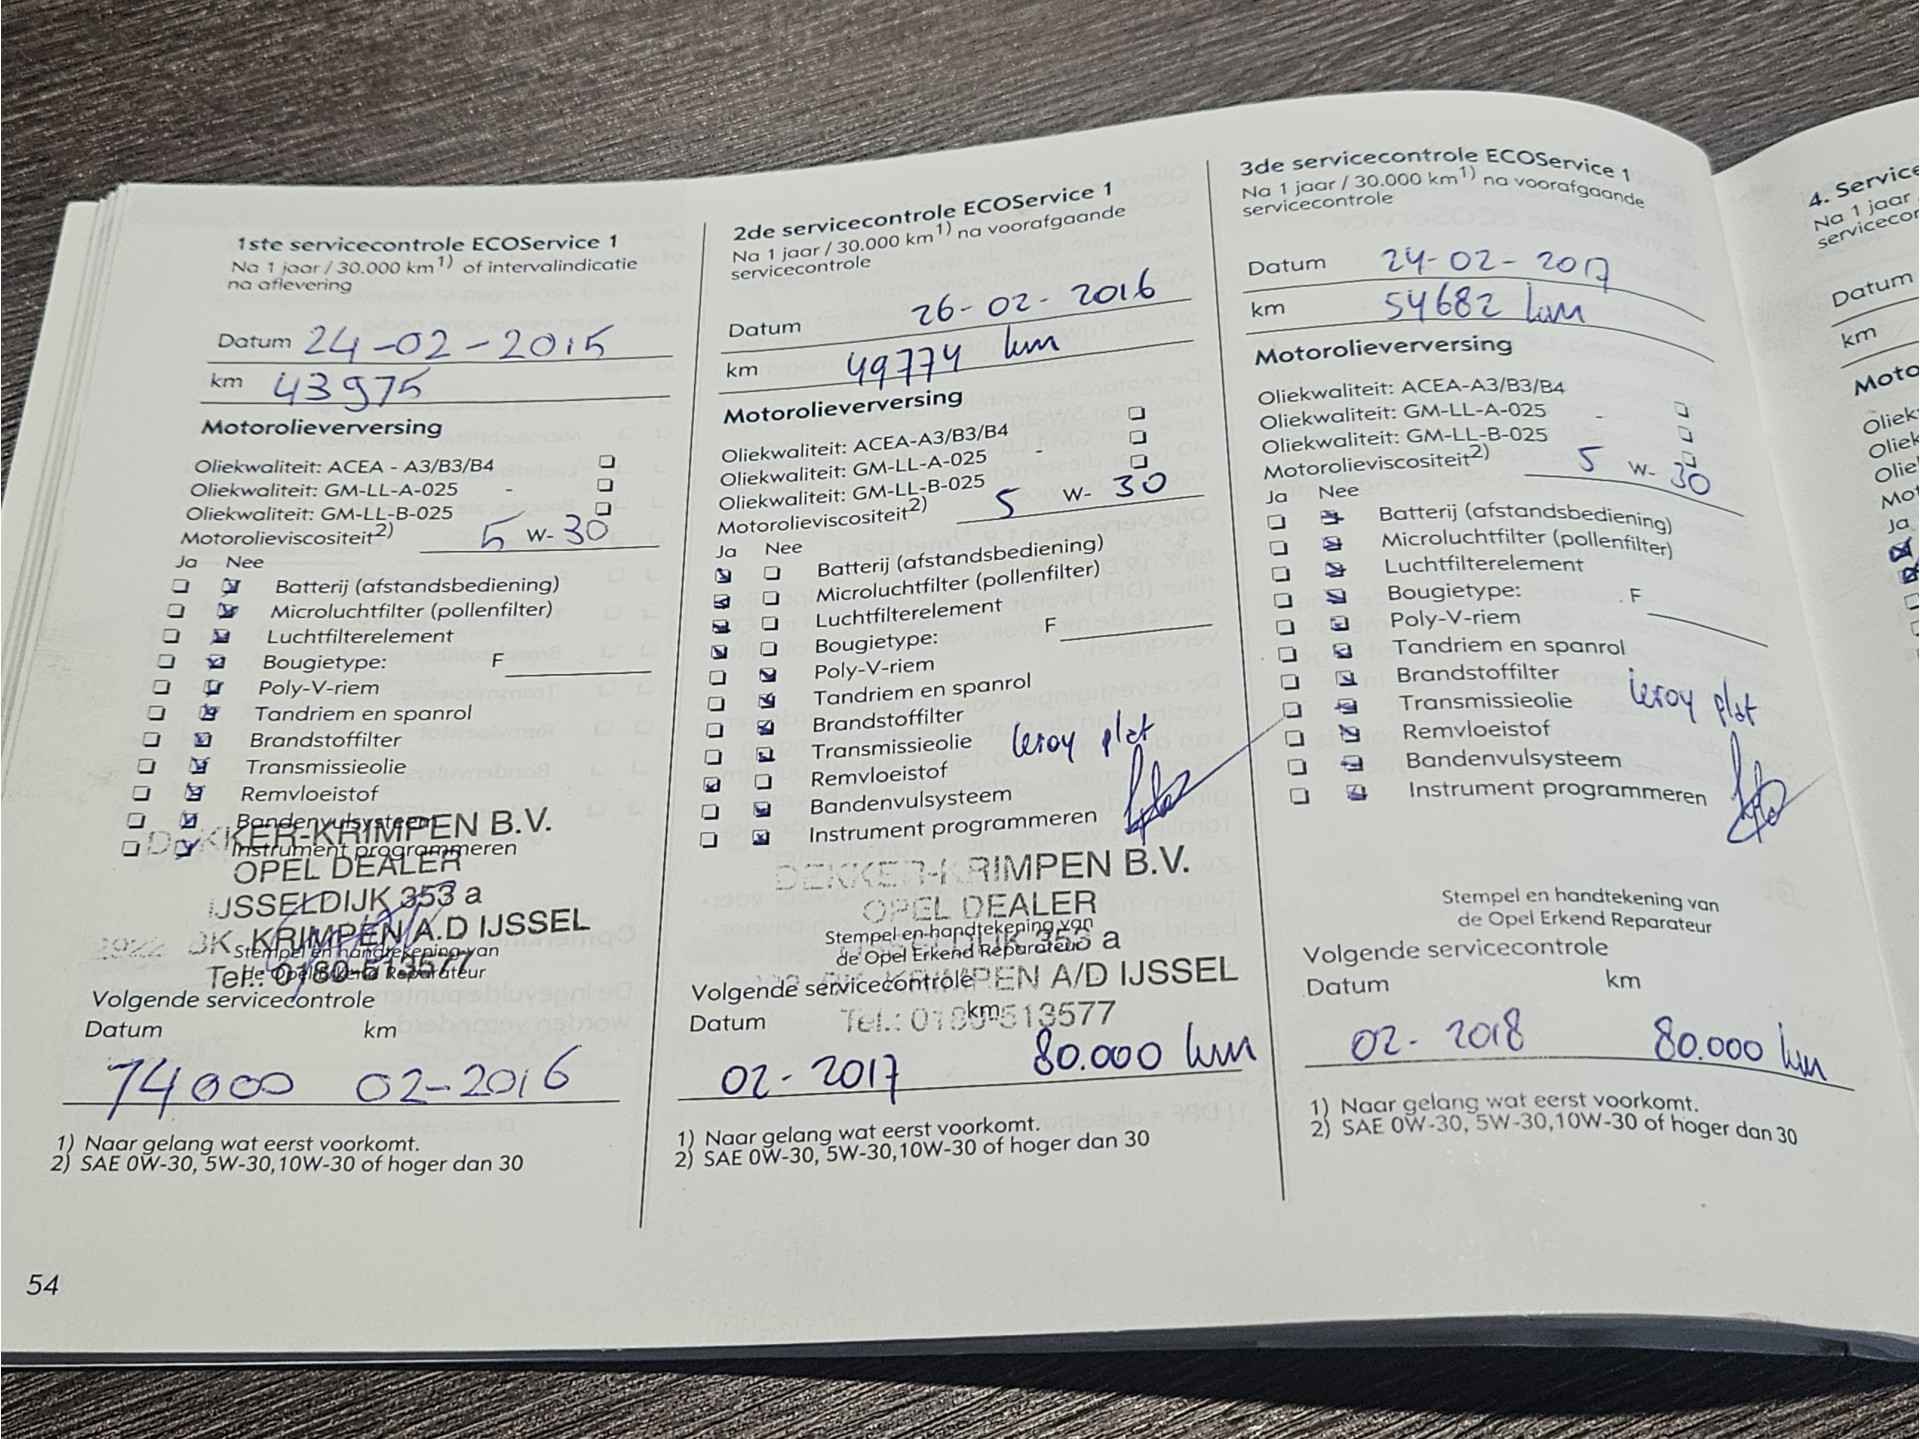 1ste servicecontrole ECOService 1
Na 1 jaar / 30.000 km1) of intervalindicatie
na aflevering
Datum 24-02-2015
km 43975
Motorolieverversing
Oliekwaliteit: ACEA - A3/B3/B4
Oliekwaliteit: GM-LL-A-025 -
Oliekwaliteit: GM-LL-B-025
Motorolieviscositeit2) 5 W- 30
Ja Nee
Batterij (afstandsbediening)
Microluchtfilter (pollenfilter)
Luchtfilterelement
Bougietype: F
Poly-V-riem
Tandriem en spanrol
Brandstoffilter
Transmissieolie
Remvloeistof
Bandenvulsysteem
Instrument programmeren
DEKKER-KRIMPEN B.V.
OPEL DEALER
IJSSELDIJK 353 a
2922 BK KRIMPEN A.D IJSSEL
Tel.: 0180-513577
Stempel en handtekening van
de Opel Erkend Reparateur
Volgende servicecontrole
Datum km
74000 02-2016
1) Naar gelang wat eerst voorkomt.
2) SAE 0W-30, 5W-30,10W-30 of hoger dan 30
54
2de servicecontrole ECOService 1
Na 1 jaar / 30.000 km1) na voorafgaande
servicecontrole
Datum 26-02-2016
km 49774 km
Motorolieverversing
Oliekwaliteit: ACEA-A3/B3/B4
Oliekwaliteit: GM-LL-A-025 -
Oliekwaliteit: GM-LL-B-025
Motorolieviscositeit2) 5 W- 30
Ja Nee
Batterij (afstandsbediening)
Microluchtfilter (pollenfilter)
Luchtfilterelement
Bougietype: F
Poly-V-riem
Tandriem en spanrol
Brandstoffilter
Transmissieolie leroy plat
Remvloeistof
Bandenvulsysteem
Instrument programmeren
DEKKER-KRIMPEN B.V.
OPEL DEALER
IJSSELDIJK 353 a
KRIMPEN A/D IJSSEL
Tel.: 0180-513577
Stempel en handtekening van
de Opel Erkend Reparateur
Volgende servicecontrole
Datum km
02-2017 80.000 km
1) Naar gelang wat eerst voorkomt.
2) SAE 0W-30, 5W-30,10W-30 of hoger dan 30
3de servicecontrole ECOService 1
Na 1 jaar / 30.000 km1) na voorafgaande
servicecontrole
Datum 24-02-2017
km 54682 km
Motorolieverversing
Oliekwaliteit: ACEA-A3/B3/B4
Oliekwaliteit: GM-LL-A-025 -
Oliekwaliteit: GM-LL-B-025
Motorolieviscositeit2) 5 W- 30
Ja Nee
Batterij (afstandsbediening)
Microluchtfilter (pollenfilter)
Luchtfilterelement
Bougietype: F
Poly-V-riem
Tandriem en spanrol
Brandstoffilter
Transmissieolie leroy plat
Remvloeistof
Bandenvulsysteem
Instrument programmeren
Stempel en handtekening van
de Opel Erkend Reparateur
Volgende servicecontrole
Datum km
02-2018 80.000 km
1) Naar gelang wat eerst voorkomt.
2) SAE 0W-30, 5W-30,10W-30 of hoger dan 30
4. Service
Na 1 jaar
Datum
km
Ja